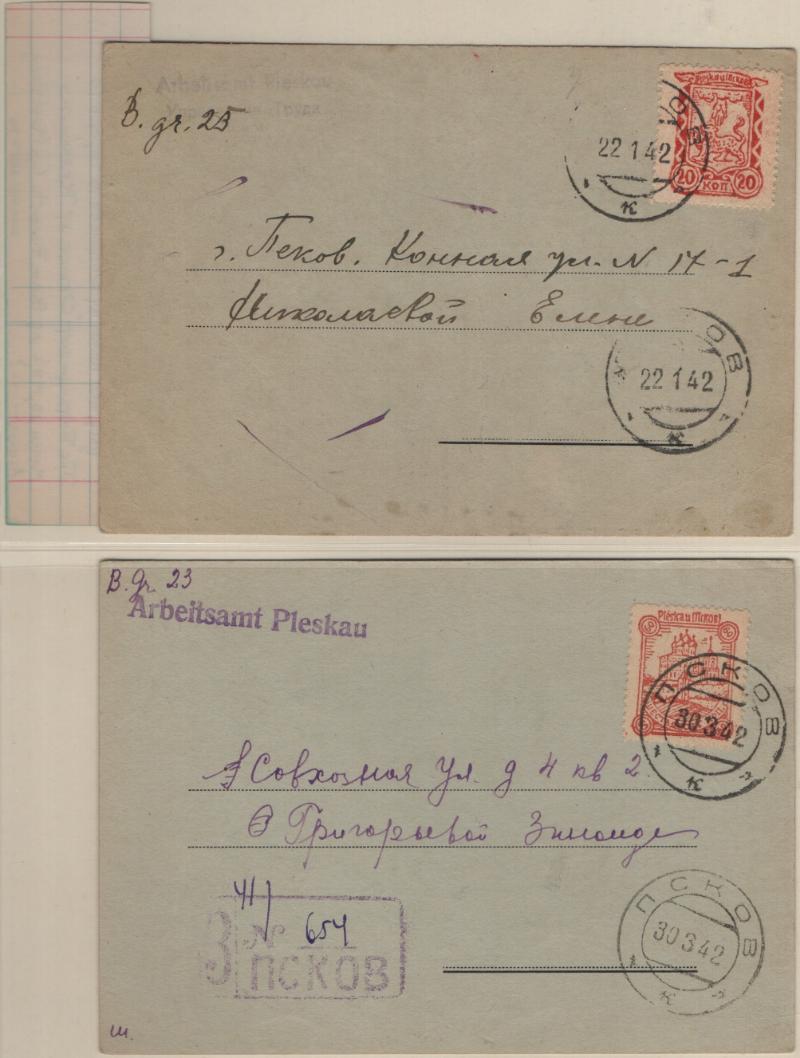 Arbeitsamt Pleskau
Управление Труда
B. gr. 25
Pleskau (Псков)
20 КОП 20
22 1 42
к
г. Псков. Конная ул. N 17-1
Николаевой Елене
ПСКОВ
22 1 42
к
B. gr. 23
Arbeitsamt Pleskau
Pleskau (Псков)
60 60
ПСКОВ
30 3 42
к
Совхозная ул. д 4 кв 2
Григорьевой Зинаиде
З
N 654
ПСКОВ
ПСКОВ
30 3 42
к
ш.